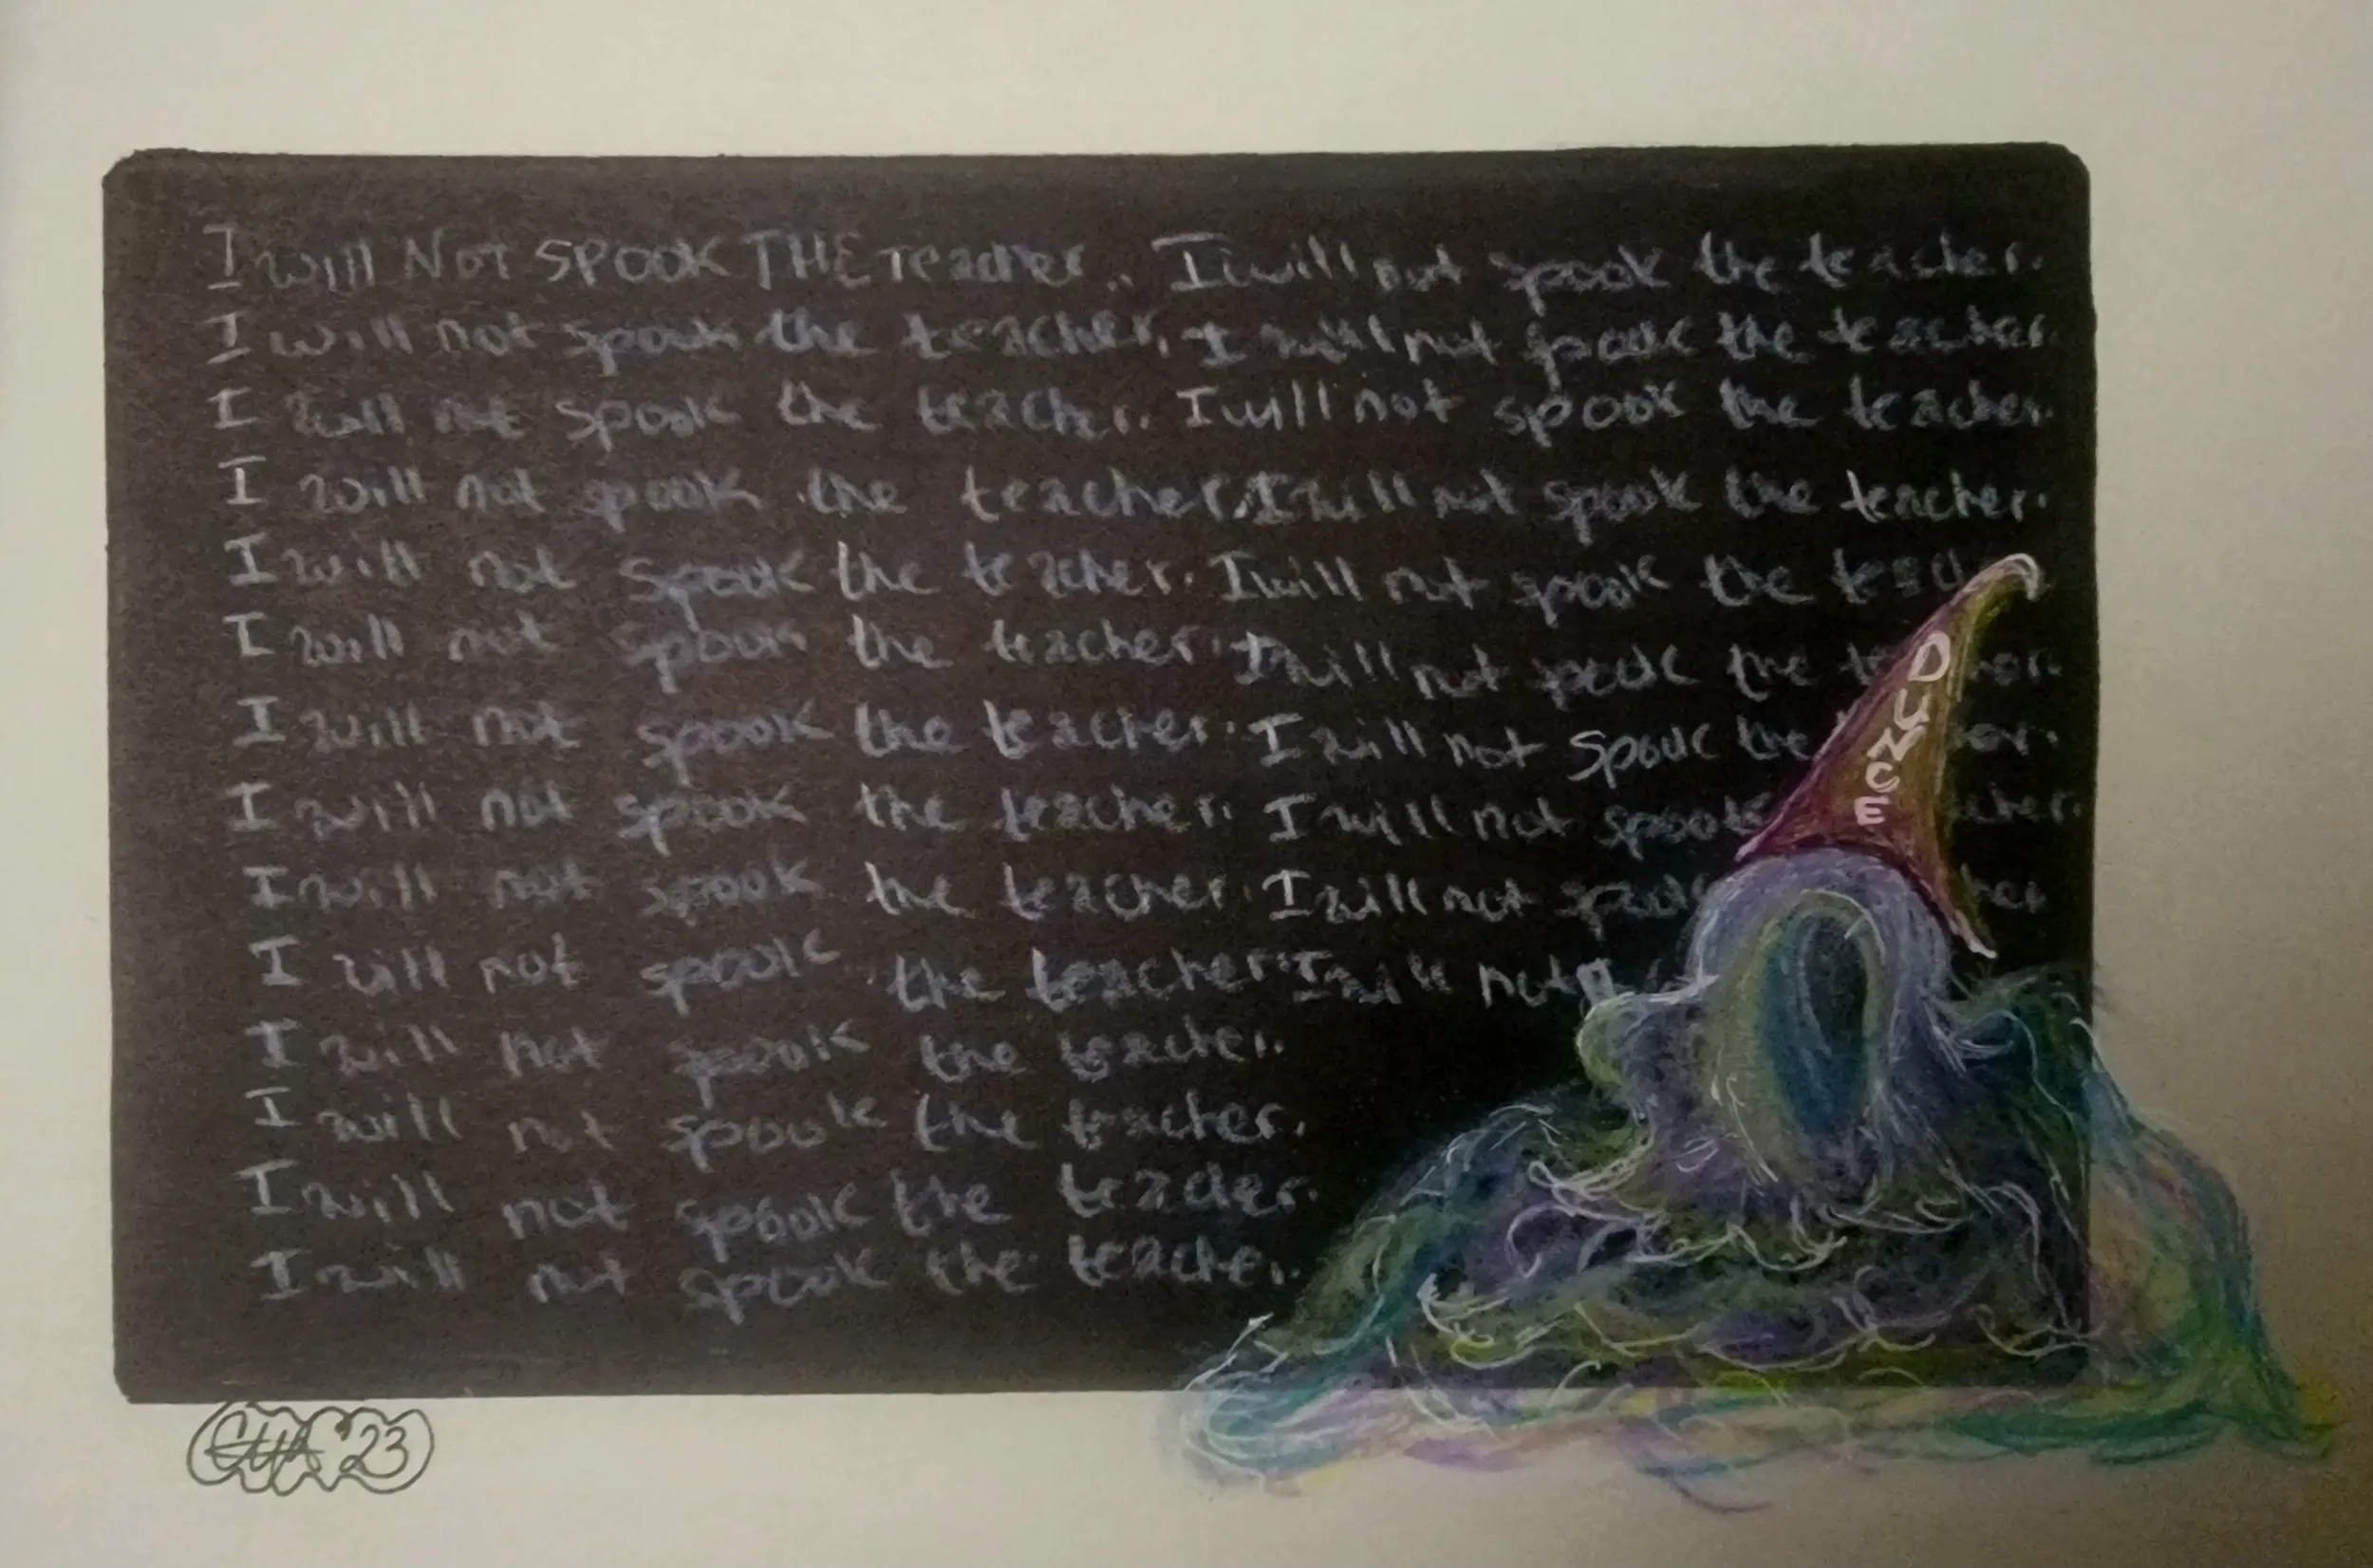 I will NOT SPOOK THE Teacher.. I will not spook the teacher.
I will not spook the teacher. I will not spook the teacher.
I will not spook the teacher. I will not spook the teacher.
I will not spook the teacher. I will not spook the teacher.
I will not spook the teacher. I will not spook the teac
I will not spook the teacher. I will not spook the t her.
I will not spook the teacher. I will not spook the her.
I will not spook the teacher. I will not spook cher.
I will not spook the teacher. I will not spook her
I will not spook the teacher. I will not
I will not spook the teacher.
I will not spook the teacher.
I will not spook the teacher.
I will not spook the teacher.
DUNCE
'23